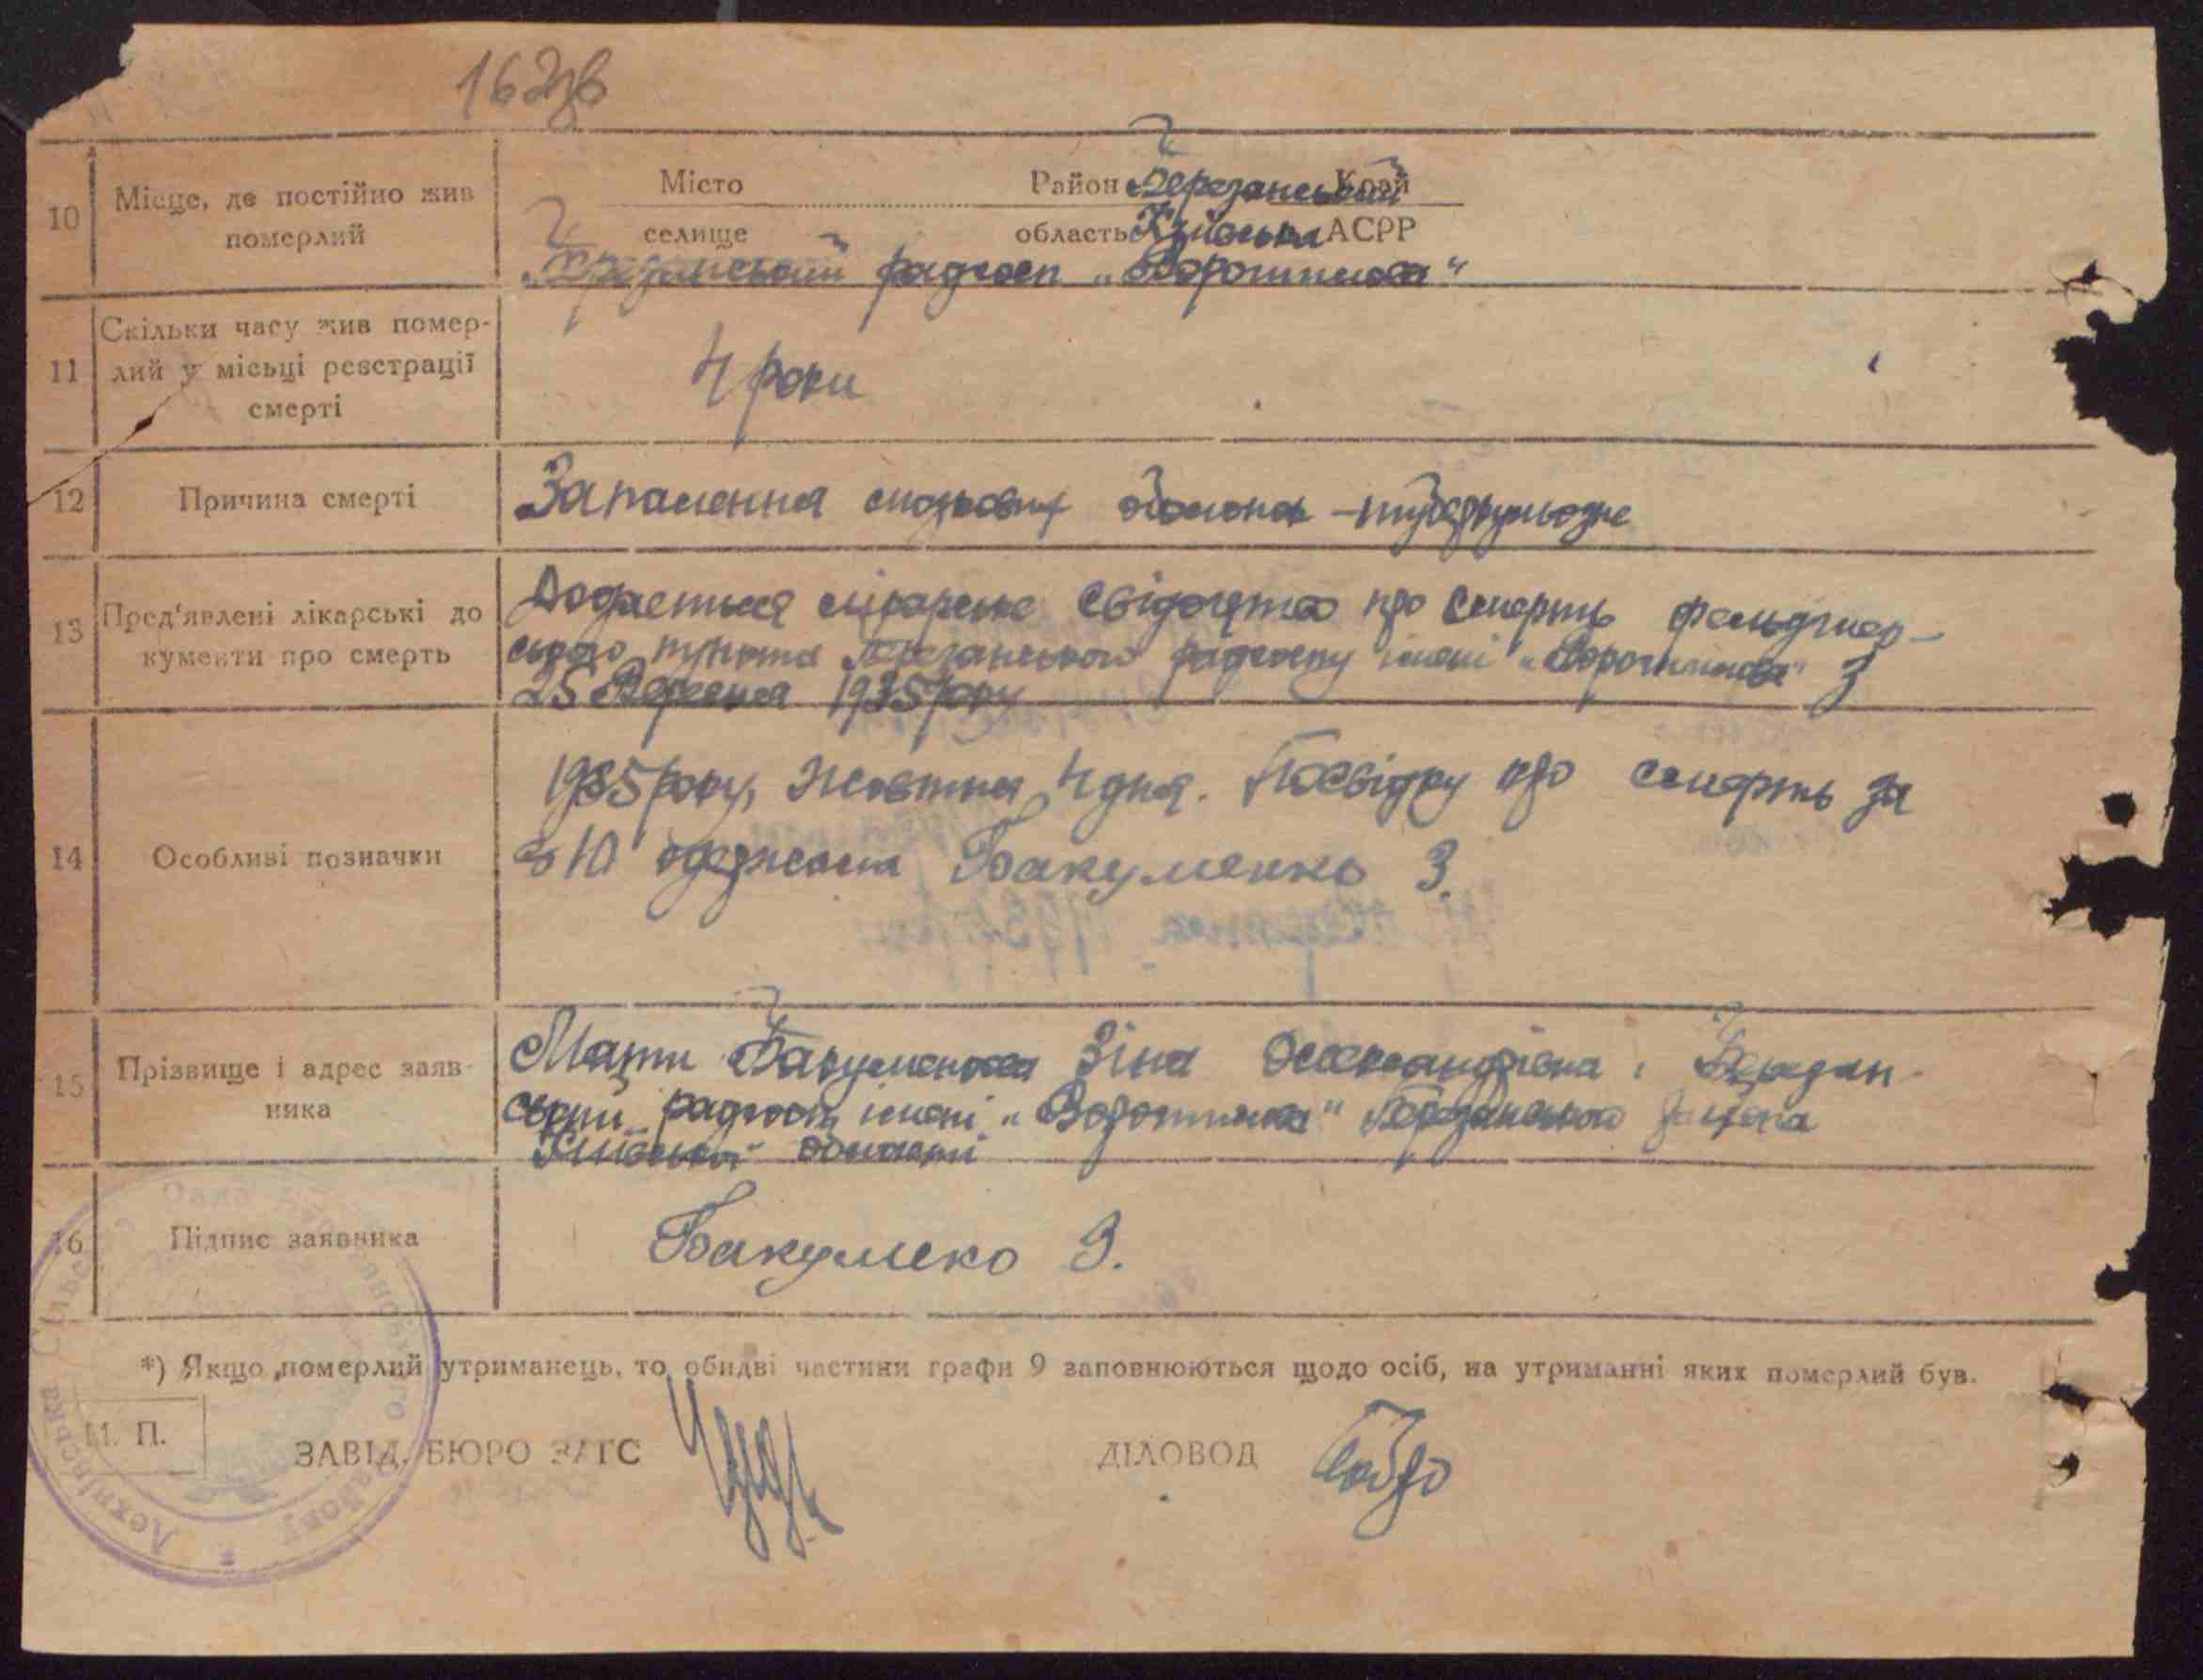 162зв
10
Місце, де постійно жив
померлий
Місто
Район Березанський Край
селище
область Київська АСРР
„Березанський радгосп „Ворошилова“
11
Скільки часу жив помер-
лий у місьці реєстрації
смерті
4 роки
12
Причина смерті
Запалення мозкових оболонок – туберкульозне
13
Пред'явлені лікарські до
кументи про смерть
Додається лікарське свідоцтво про смерть фельдшер-
ського пункта Березанського радгоспу імені „Ворошилова“ з
25 Вересня 1935 року
14
Особливі позначки
1935 року, Жовтня 4 дня. Посвідку про смерть за
№ 10 одержала Бакуменко З.
15
Прізвище і адрес заяв-
ника
Мати Бакуменкова Зіна Олександрівна, Березан-
ський радгосп імені „Ворошилова“ Березанського району
Київської області
16
Підпис заявника
Бакумеко З.
*) Якщо померлий утриманець, то обидві частини графи 9 заповнюються щодо осіб, на утриманні яких померлий був.
М. П.
ЗАВІД. БЮРО ЗАГС
ДІЛОВОД